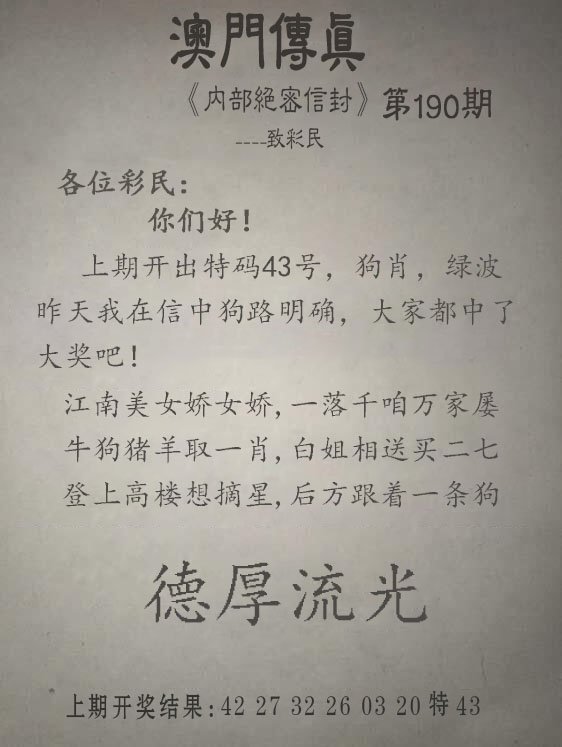 澳門傳真
《内部絕密信封》第190期
----致彩民
各位彩民：
你们好！
上期开出特码43号，狗肖，绿波
昨天我在信中狗路明确，大家都中了
大奖吧！
江南美女娇女娇,一落千咱万家屡
牛狗猪羊取一肖,白姐相送买二七
登上高楼想摘星,后方跟着一条狗
德厚流光
上期开奖结果:42 27 32 26 03 20 特 43